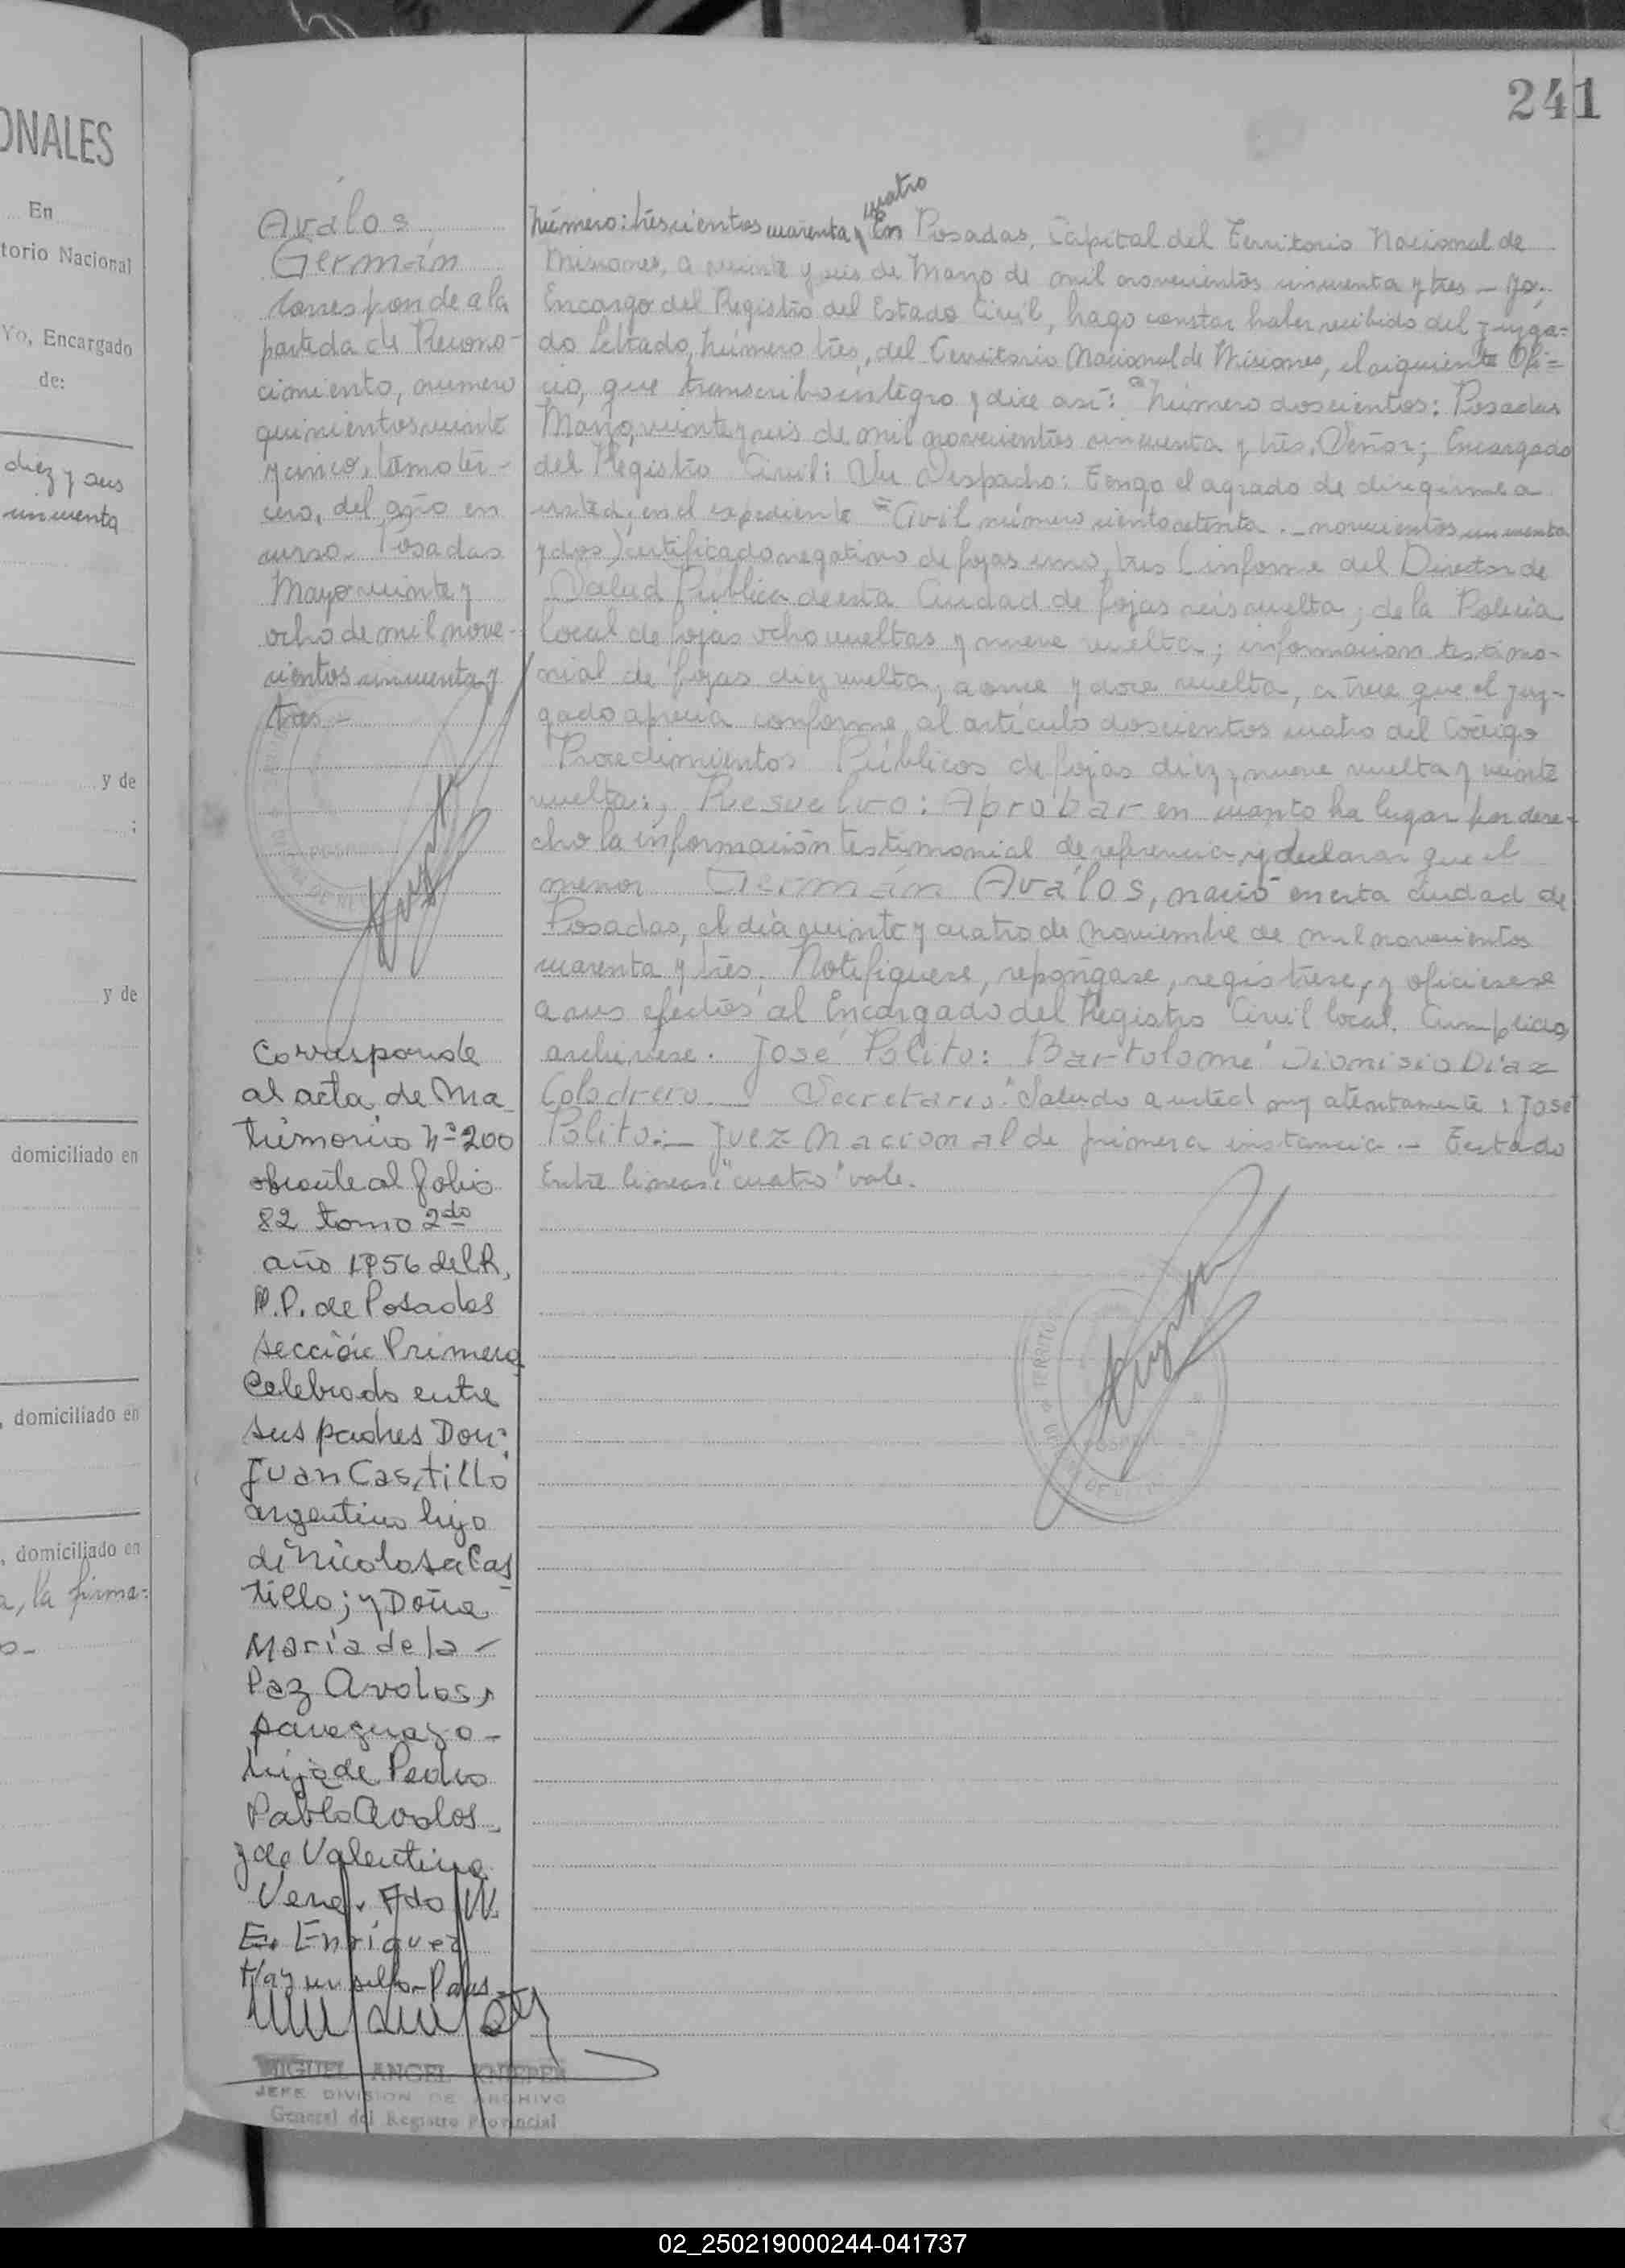 241
ONALES
En
torio Nacional
Yo, Encargado
de:
diez y aus
y de
;
y de
domiciliado en
, domiciliado en
, domiciliado en
a, la firma=
Avalos
Germán
Corresponde a la
partida de Recono-
cimiento, numero
quinientos veinte
y cinco, tomo ter-
cero, del año en
curso. Posadas
Mayo veinte y
ocho de mil nove-
cientos cincuenta y
tres -
Corresponde
al acta de Ma
trimonio Nº 200
obrante al folio
82 tomo 2do
año 1956 del R.
P.P. de Posadas
sección Primera
Celebrado entre
sus padres Don:
Juan Castillo
argentino hijo
de Nicolasa Cas
tillo; y Doña
María de la -
Paz Avalos,
paraguaya -
hija de Pedro
Pablo Avalos
y de Valentina
Vera. Fdo W.
E. Enriquez
Hay un sello - Pdas.
MIGUEL ANGEL KNIEPER
JEFE DIVISION DE ARCHIVO
General del Registro Provincial
cuatro
Número: trescientos cuarenta y En Posadas, Capital del Territorio Nacional de
Misiones, a veinte y seis de Marzo de mil novecientos cincuenta y tres - Yo:
Encargo del Registro del Estado Civil, hago constar haber recibido del Juzga=
do Letrado, Número tres, del Territorio Nacional de Misiones, el siguiente Ofi=
cio, que transcribo integro y dice así: "Número doscientos: Posadas
Marzo, veinte y seis de mil novecientos cincuenta y tres. Señor; Encargado
del Registro Civil: Su Despacho: Tengo el agrado de dirigirme a
usted, en el expediente = Civil número ciento setenta . - novecientos cincuenta
y dos) certificado negativo de fojas uno, tres (informe del Director de
Salud Pública de esta Ciudad de fojas seis vuelta; de la Policia
local de fojas ocho vueltas y nueve vuelta; informacion testimo-
nial de fojas diez vuelta, a once y doce vuelta, a trece que el Juz-
gado aprecia conforme al artículo doscientos cuatro del Código
Procedimientos Públicos de fojas diez y nueve vuelta y veinte
vuelta:, Resuelvo: Aprobar en cuanto ha lugar por dere-
cho la información testimonial de referencia, y declarar que el
menor Germán Avalos, nació en esta Ciudad de
Posadas, el día veinte y cuatro de Noviembre de mil novecientos
cuarenta y tres. Notifiquese, repóngase, regístrese, y oficiesese
a sus efectos al Encargado del Registro Civil local. Cumplido,
archivese. José Polito: Bartolomé Dionisio Diaz
Coladrero. - Secretario." Saludo a usted muy atentamente: José
Polito: - Juez Nacional de primera instancia. - Testado
Entre lineas: "cuatro" vale.
02_250219000244-041737